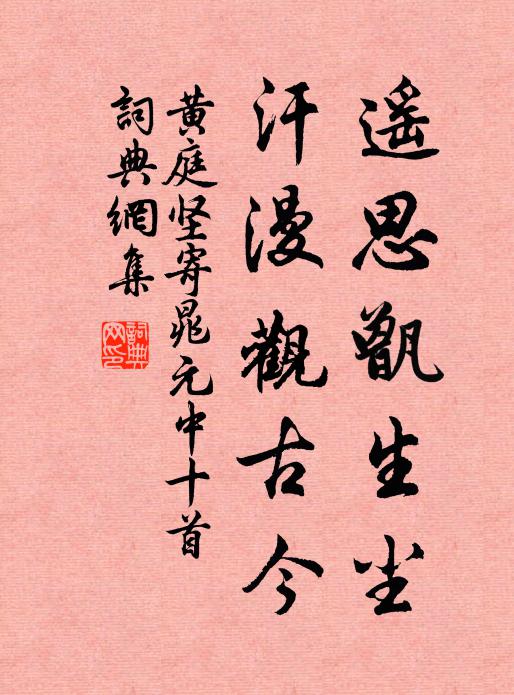 遥思甑生尘
汗漫觀古今
黄庭坚寄晁元中十首
詞典網集
詞典网印